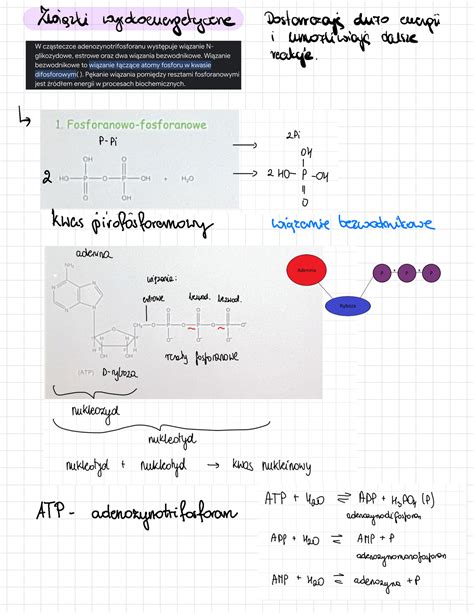 Związki wysokoenergetyczne
Dostarczają dużo energii
i umożliwiają dalsze
reakcje.
W cząsteczce adenozynotrifosforanu występuje wiązanie N-
glikozydowe, estrowe oraz dwa wiązania bezwodnikowe. Wiązanie
bezwodnikowe to wiązanie łączące atomy fosforu w kwasie
difosforowym( ). Pękanie wiązania pomiędzy resztami fosforanowymi
jest źródłem energii w procesach biochemicznych.
1. Fosforanowo-fosforanowe
P-Pi
2Pi
OH OH
2 HO-P-O-P-OH + H₂O
O O
OH
2 HO-P-OH
O
kwas pirofosforanowy
wiązanie bezwodnikowe
adenina
NH₂
wiązanie:
estrowe bezwod. bezwod.
Adenina
P P P
Ryboza
N N N N
CH₂-O-P-O-P-O-P-O⁻
O O O
O⁻ O⁻ O⁻
O
OH OH
reszty fosforanowe
(ATP) D-ryboza
nukleozyd
nukleotyd
nukleotyd + nukleotyd → kwas nukleinowy
ATP - adenozynotrifosforan
ATP + H₂O ⇌ ADP + H₃PO₄ (P)
adenozynodifosforan
ADP + H₂O ⇌ AMP + P
adenozynomonofosforan
AMP + H₂O ⇌ adenozyna + P